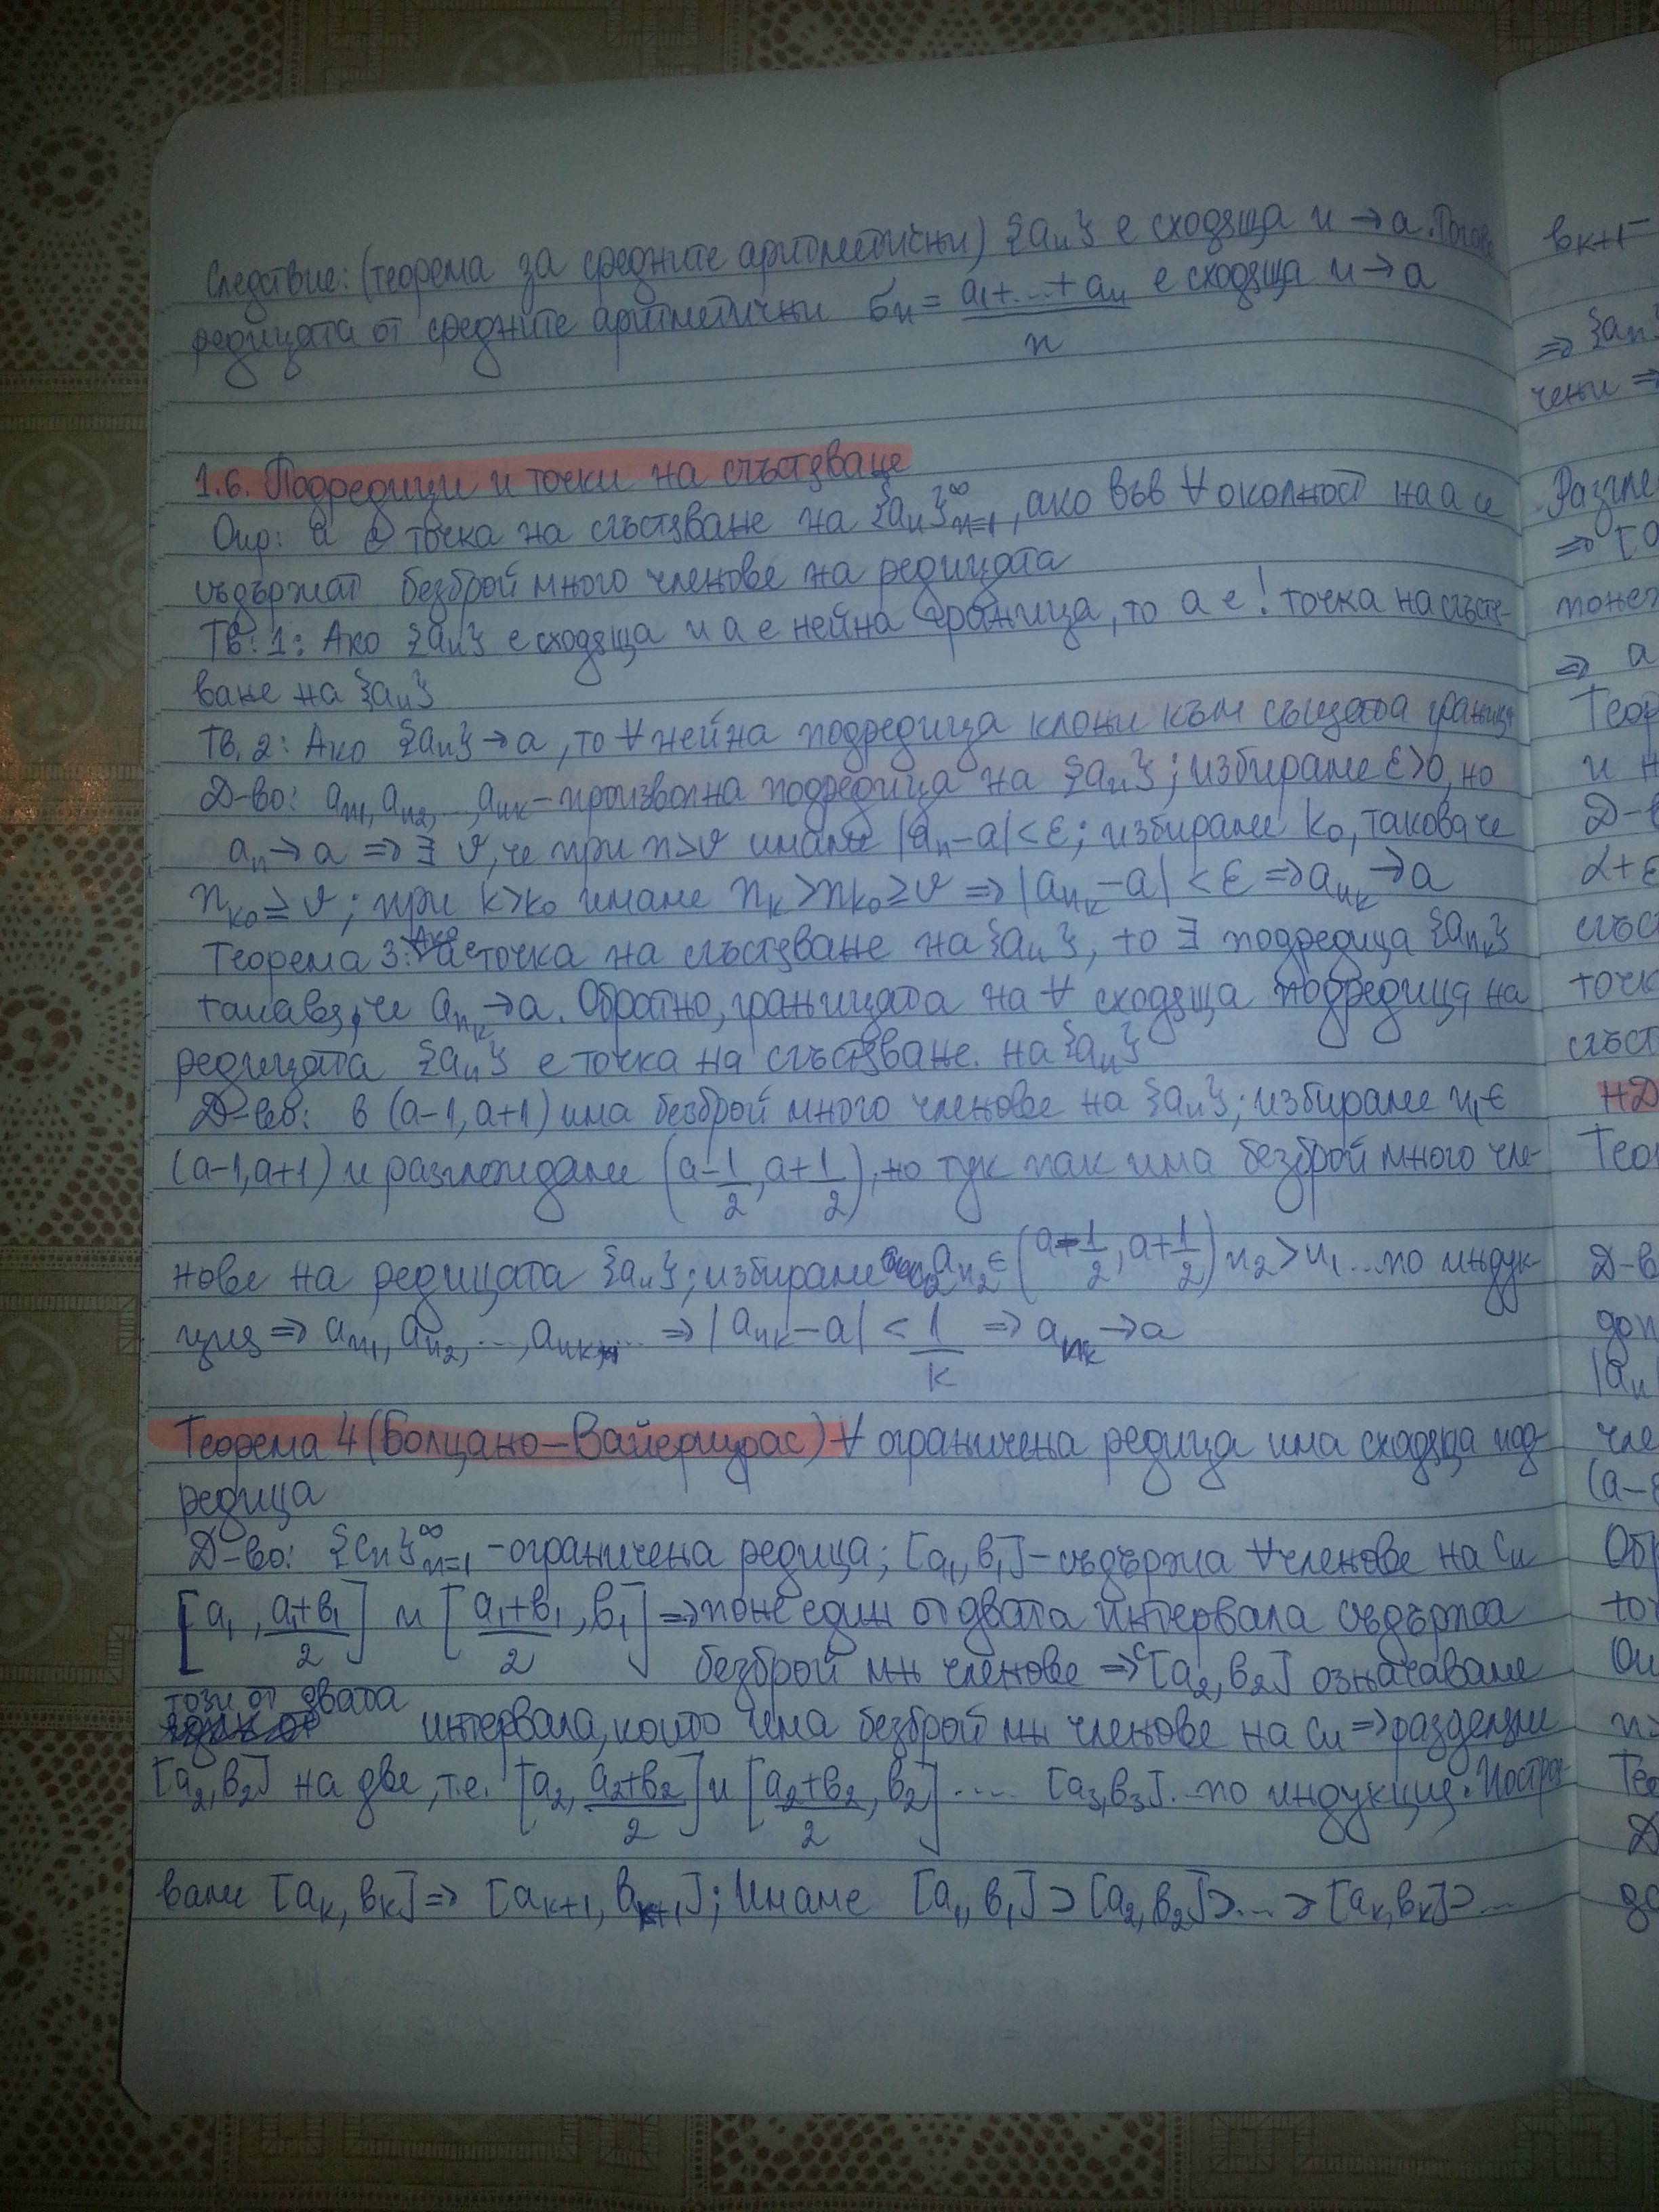 Следствие: (теорема за средните аритметични) {aₙ} е сходяща и → a. Тогава
редицата от средните аритметични σₙ = (a₁+...+aₙ)/n е сходяща и → a
1.6. Подредици и точки на сгъстяване
Опр: a е точка на сгъстяване на {aₙ}ₙ₌₁^∞, ако във ∀ околност на a се
съдържат безброй много членове на редицата
Тв. 1: Ако {aₙ} е сходяща и a е нейна граница, то a е ! точка на сгъстя-
ване на {aₙ}
Тв. 2: Ако {aₙ} → a, то ∀ нейна подредица клони към същата граница
Д-во: aₙ₁, aₙ₂, ..., aₙₖ – произволна подредица на {aₙ}; избираме ε>0, но
aₙ → a => ∃ ν, че при n>ν имаме |aₙ – a| < ε; избираме k₀, такова че
nₖ₀ ≥ ν; при k>k₀ имаме nₖ > nₖ₀ ≥ ν => |aₙₖ – a| < ε => aₙₖ → a
Теорема 3: Ако a е точка на сгъстяване на {aₙ}, то ∃ подредица {aₙₖ}
такава, че aₙₖ → a. Обратно, границата на ∀ сходяща подредица на
редицата {aₙ} е точка на сгъстяване на {aₙ}
Д-во: в (a-1, a+1) има безброй много членове на {aₙ}; избираме n₁ ∈
(a-1, a+1) и разглеждаме (a-1/2, a+1/2), но тук пак има безброй много чле-
нове на редицата {aₙ}; избираме aₙ₂ ∈ (a-1/2, a+1/2) n₂ > n₁ ... по индук-
ция => aₙ₁, aₙ₂, ..., aₙₖ, ... => |aₙₖ – a| < 1/k => aₙₖ → a
Теорема 4 (Болцано – Вайерщрас) ∀ ограничена редица има сходяща под-
редица
Д-во: {cₙ}ₙ₌₁^∞ – ограничена редица; [a₁, b₁] – съдържа ∀ членове на cₙ
[a₁, (a₁+b₁)/2] и [(a₁+b₁)/2, b₁] => поне един от двата интервала съдържа
безброй мн членове => с [a₂, b₂] означаваме
този от двата интервала, който има безброй мн членове на cₙ => разделям
[a₂, b₂] на две, т.е. [a₂, (a₂+b₂)/2] и [(a₂+b₂)/2, b₂] .... [a₃, b₃]... по индукция. Построя-
ваме [aₖ, bₖ] => [aₖ₊₁, bₖ₊₁]; Имаме [a₁, b₁] ⊃ [a₂, b₂] ⊃ ... ⊃ [aₖ, bₖ] ⊃ ...